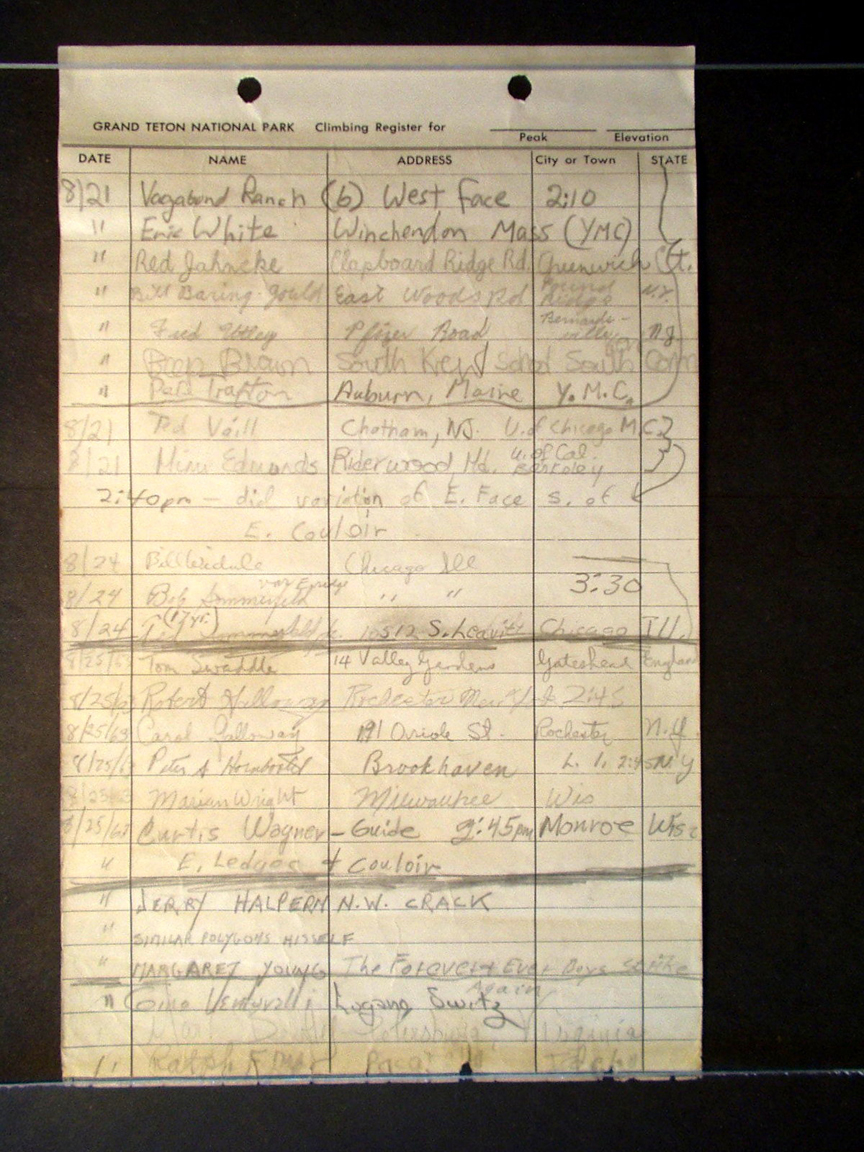 GRAND TETON NATIONAL PARK Climbing Register for
Peak Elevation
DATE NAME ADDRESS City or Town STATE
8/21 Vagabond Ranch (6) West Face 2:10
" Eric White Winchendon Mass (YMC)
" Red Jahncke Clapboard Ridge Rd. Greenwich Ct.
" Bill Baring-Gould East Woods Rd Pound Ridge N.Y.
" Fred Pfizer Road Bernardsville NJ
" Brown South Kent School South Kent Conn
" Pete Trafton Auburn, Maine Y.M.C.
8/21 Ted Vaill Chatham, NJ. U. of Chicago M.C.
8/21 Mimi Edmunds Riderwood Md. U. of Cal. Berkeley
2:40pm - did variation of E. Face S. of
E. Couloir
8/24 Bill Chicago Ill
8/24 Bob Sommerfeld var E ridge " " 3:30
8/24 (17 yr.) 10512 S. Leavitt Chicago Ill.
8/25/63 Tom Swaddle 14 Valley Gardens Gateshead England
8/25/63 Robert Galloway Rochester New York 2:45
8/25/63 Carol Galloway 191 Oriole St. Rochester N.Y.
8/25/63 Peter A Hornbostel Brookhaven L. I. 2:45 NY
8/25/63 Marian Wright Milwaukee Wis
8/25/63 Curtis Wagner - Guide 2:45pm Monroe Wisc
" E. Ledges + Couloir
" JERRY HALPERN N.W. CRACK
" SIMILAR POLYGONS HISSELF
" MARGARET YOUNG The Forever + Ever Boys Strike Again
" Gino Lugano Switz
Petersburg, Virginia
" Ralph Idaho